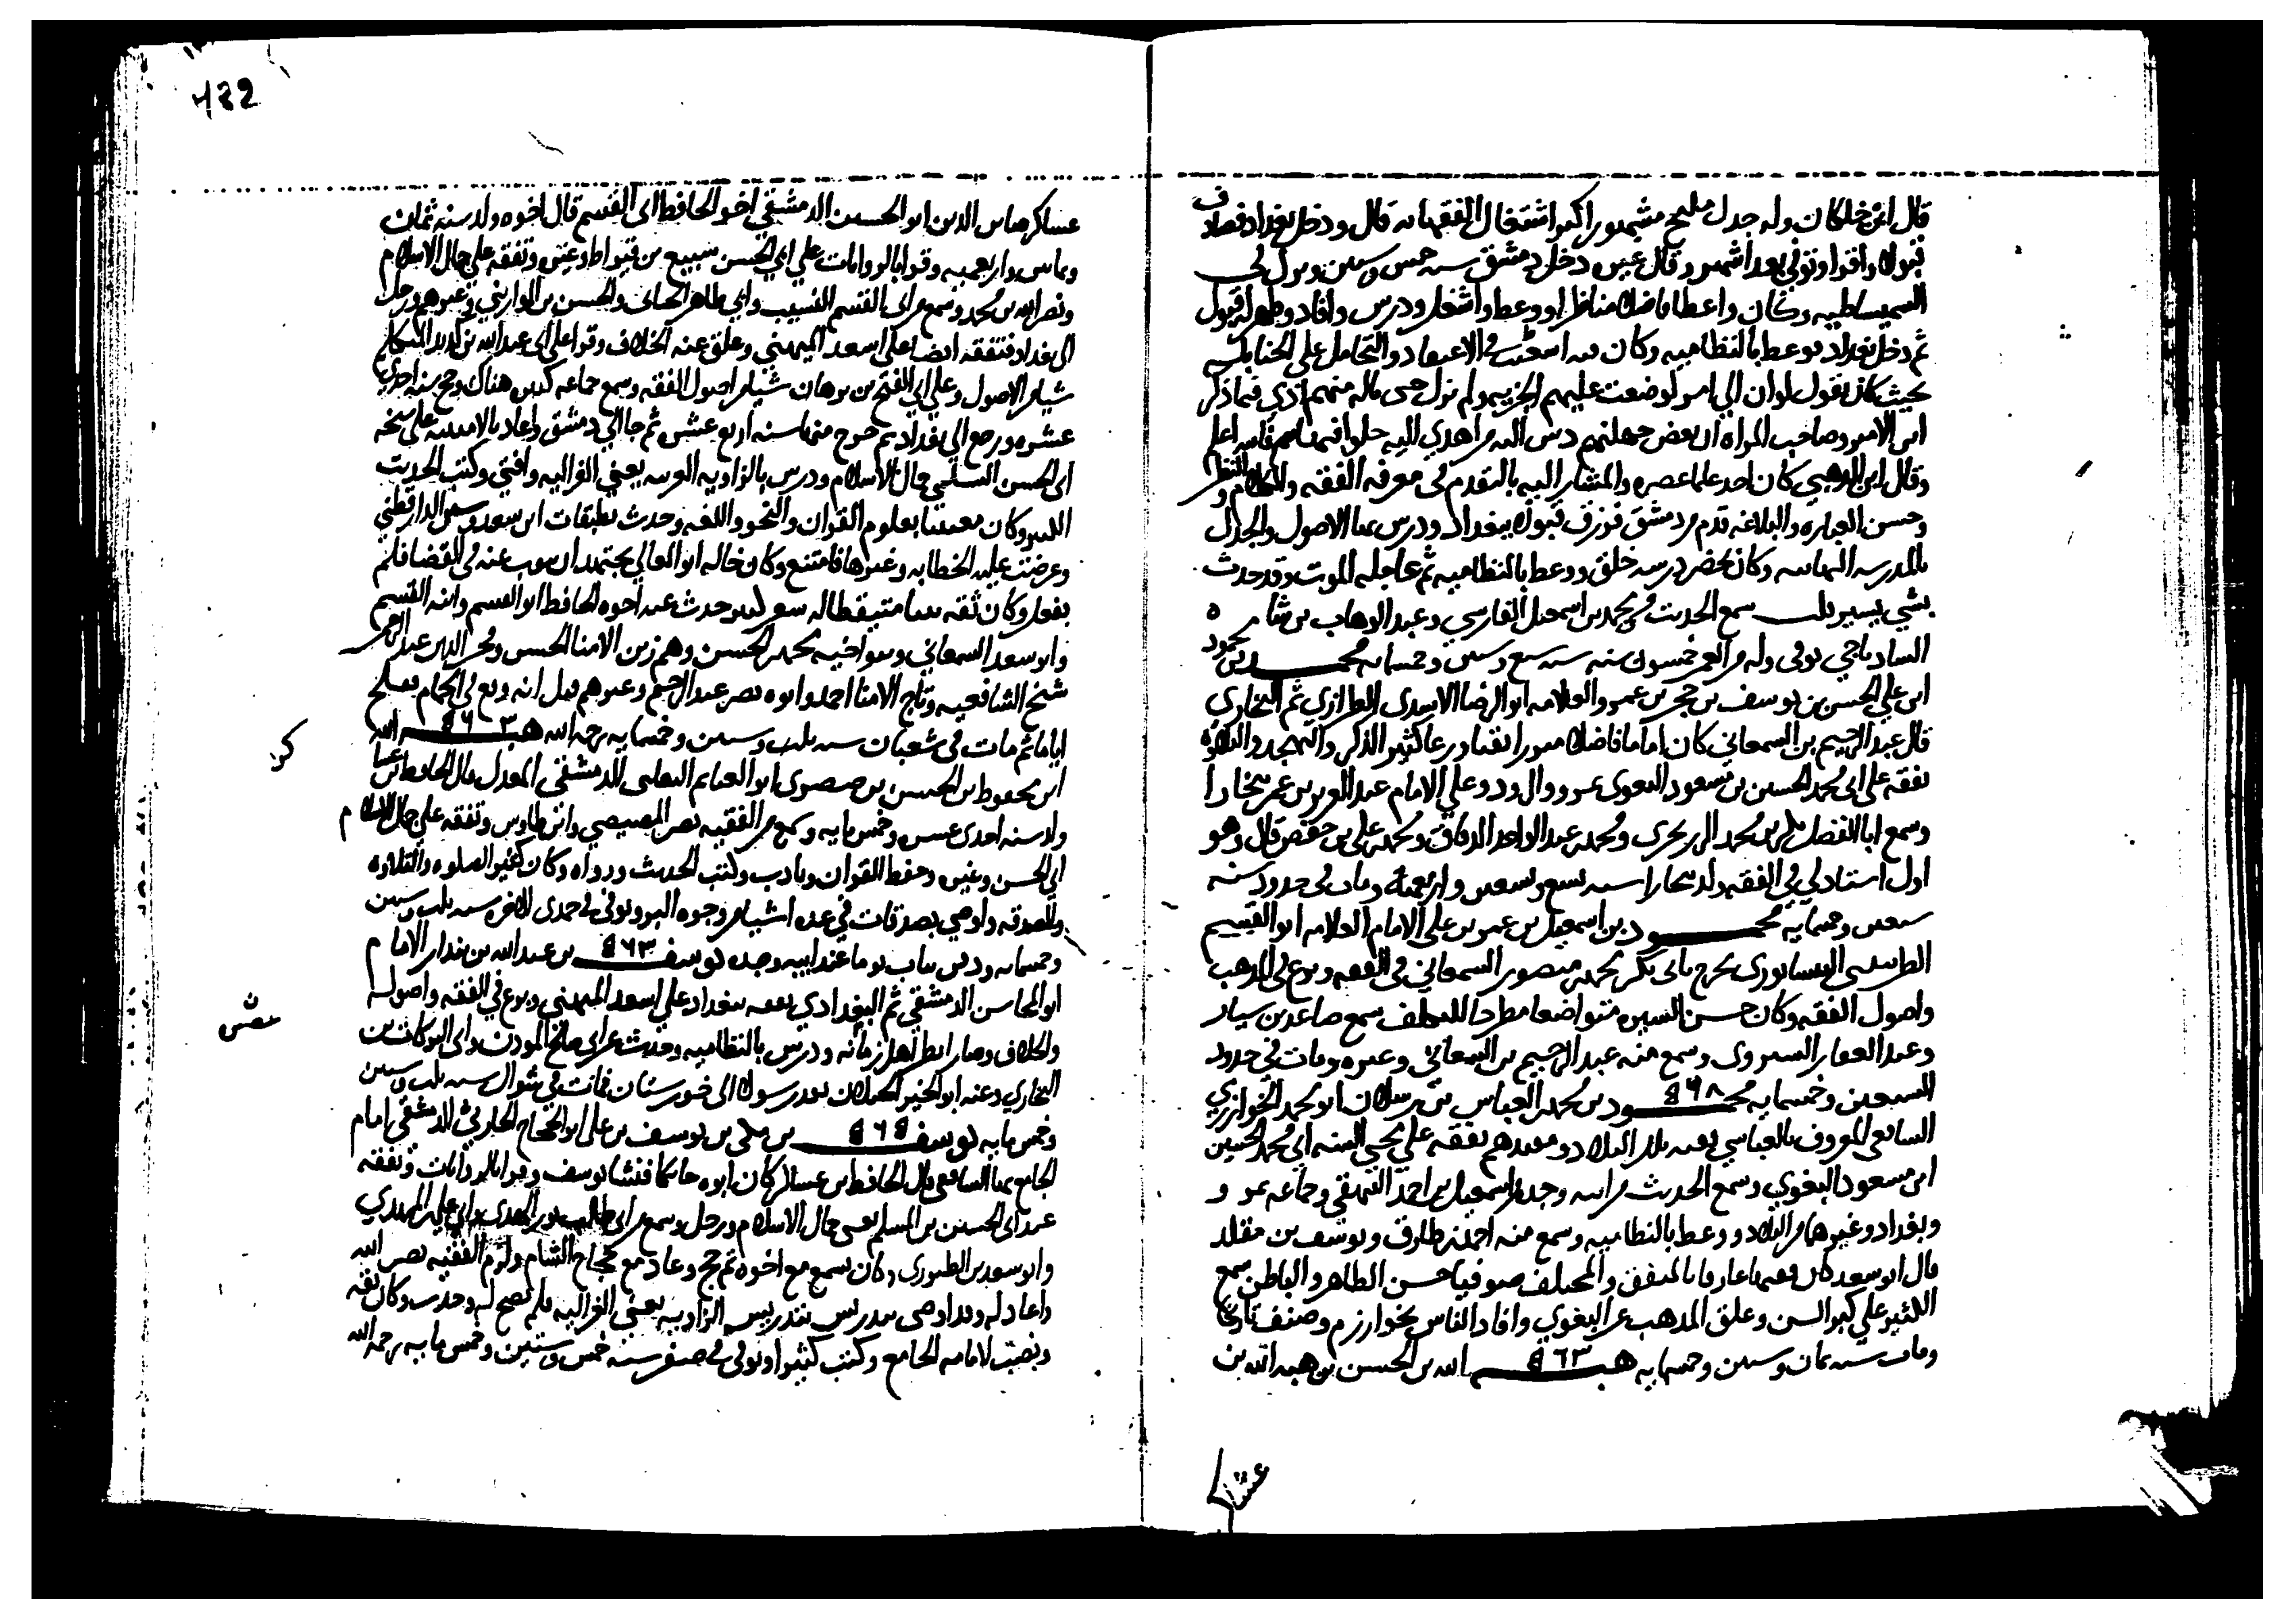 قال ابن خلكان وله جدل مليح مشهور اكثر اشتغال الفقها به قال ودخل بغداد فصادف
قبولا وافرا وتوفي بعد اشهر وقال غيره دخل دمشق سنه خمس وستين ونزل في
السميساطيه وكان واعظا فاضلا مناظرا ووعظ واشغل ودرس وافاد وظهر له قبول
ثم دخل بغداد ووعظ بالنظاميه وكان في الاعتقاد والتحامل على الحنابله
بحيث كان يقول لو ان الي امر لوضعت عليهم الجزيه ولم نزل حتى ناله منهم اذي فيما ذكر
ابن الاثير وصاحب المراه ان بعض جهلتهم دس اليه من اهدي اليه حلوا فيها سم والله اعلم
وقال ابن الدبيثي كان احد علما عصره والمشار اليه بالتقدم في معرفه الفقه والكلام والنظر
وحسن العباره والبلاغه قدم من دمشق فرزق قبولا ببغداد ودرس بها الاصول والجدل
بالمدرسه البهاييه وكان يحضر درسه خلق ووعظ بالنظاميه ثم عاجله الموت وقد حدث
بشي يسير سمع الحديث من محمد بن اسمعيل الفارسي وعبد الوهاب بن شاه
الشادياخي توفي وله من العمر خمسون سنه سنه سبع وستين وخمسمايه محمد بن محمود
ابن علي الحسن بن يوسف بن حجر بن عمرو العلامه ابو الرضا الاسدي الطرازي ثم البخاري
قال عبد الرحيم بن السمعاني كان اماما فاضلا مبرزا تقيا ورعا كثير الذكر والتهجد والتلاوه
تفقه على ابي محمد الحسين بن مسعود البغوي بمرو الروذ وعلي الامام عبد العزيز بن عمر ببخارا
وسمع ابا الفضل بكر بن محمد الزرنجري ومحمد بن عبد الواحد الدقاق ومحمد بن علي بن حفص قال وهو
اول استاد لي في الفقه ولد ببخارا سنه تسع وتسعين واربعمايه ومات في حدود سنه
سبعين وخمسمايه محمود بن اسمعيل بن عمر بن علي الامام العلامه ابو القسم
الطريثيثي النيسابوري تخرج بابي بكر محمد بن منصور السمعاني في الفقه وبرع في المذهب
واصول الفقه وكان حسن السيره متواضعا مطرحا للتكلف سمع صاعد بن سيار
وعبد الغفار الشيروي وسمع منه عبد الرحيم بن السمعاني وغيره ومات في حدود
السبعين وخمسمايه محمود ٥٦٨ بن محمد بن العباس بن رسلان ابو محمد الخوارزمي
الشافعي المعروف بالعباسي فقيه تلك البلاد ومفيدهم تفقه علي محيي السنه ابي محمد الحسين
ابن مسعود البغوي وسمع الحديث من ابيه وجده واسمعيل بن احمد البيهقي وجماعه بمرو
وبغداد وغيرها من البلاد ووعظ بالنظاميه وسمع منه احمد بن طارق ويوسف بن مقلد
قال ابو سعد كان فقيها عارفا بالمتفق والمختلف صوفيا حسن الظاهر والباطن سمع
الكثير علي كبر السن وعلق المذهب عن البغوي وافاد الناس بخوارزم وصنف تاريخا
ومات سنه ثمان وستين وخمسمايه هبه ٥٦٣ الله بن الحسن بن هبه الله بن
عساكر صاين الدين ابو الحسين الدمشقي اخو الحافظ ابي القسم قال اخوه ولد سنه ثمان
وثمانين واربعميه وقرا بالروايات علي ابي الحسن سبيع بن قيراط وغيره وتفقه علي جمال الاسلام
ونصر الله بن محمد وسمع من ابي القسم النسيب وابي طاهر الحنائي والحسن بن الموازيني وغيرهم ورحل
الى بغداد فتفقه ايضا علي اسعد الميهني وعلق عنه الخلاف وقرا علي ابي عبد الله بن المتكلم
شيا من الاصول وعلي ابي الفتح بن برهان شيا من اصول الفقه وسمع جماعه كثيره هناك وحج سنه احدي
عشره ورجع الي بغداد ثم خرج منها سنه اربع عشره ثم جا الي دمشق واعاد بالامينيه علي شيخه
ابي الحسن السلمي جمال الاسلام ودرس بالزاويه الغربيه يعني الغزاليه وافتي وكتب الحديث
الكثير وكان معتنيا بعلوم القران والنحو واللغه وحدث بطبقات ابن سعد وسنن الدارقطني
وعرضت عليه الخطابه وغيرها فامتنع وكان خاله ابو المعالي يجتهد ان ينوب عنه في القضا فلم
يفعل وكان ثقه ثبتا متيقظا له شعر كثير حدث عنه اخوه الحافظ ابو القسم وابنه القسم
وابو سعد السمعاني وبنو اخيه محمد بن الحسن وهم زين الامنا الحسن وفخر الدين عبد الرحمن
شيخ الشافعيه وتاج الامنا احمد وابو نصر عبد الرحيم وغيرهم قيل انه وقع في الحمام ففلج
اياما ثم مات في شعبان سنه ثلث وستين وخمسمايه رحمه الله هبه ٥٦٣ الله
ابن محفوظ بن الحسن بن صصري ابو الغنايم التغلبي الدمشقي المعدل قال الحافظ ابن عساكر
ولد سنه احدي عشره وخمسمايه وسمع من الفقيه نصر المصيصي وابن طاوس وتفقه علي جمال الاسلام
ابي الحسن وغيره وحفظ القران وتادب وكتب الحديث ورواه وكان كثير الصلوه والتلاوه
والصدقه واوصي بصدقات في عده اشيا من وجوه البر وتوفي في جمدي الاخره سنه ثلث وستين
وخمسمايه ودفن بباب توما عند ابيه وجده يوسف ٥٦٣ بن عبد الله بن بندار الامام
ابو المحاسن الدمشقي ثم البغدادي تفقه ببغداد علي اسعد الميهني وبرع في الفقه واصوله
والخلاف وصار انظر اهل زمانه ودرس بالنظاميه وحدث عن ابي صالح الموذن وابي البركات بن
البخاري وعنه ابو الخير الجيلاني بعد رسولا الى خوزستان فمات في شوال سنه ثلث وستين
وخمسمايه يوسف ٥٦٥ بن مكي بن يوسف بن علي ابو الحجاج الحارثي الدمشقي امام
الجامع بها الشافعي قال الحافظ ابن عساكر كان ابوه حائكا فنشا يوسف وقرا بالروايات وتفقه
عند ابي الحسن بن المسلم يعني جمال الاسلام ورحل وسمع من ابي طالب وابي علي بن المهدي
وابو سعد بن الطيوري وكان يسمع مع اخوه ثم حج وعاد مع حجاج الشام ولزم الفقيه نصر الله
واعاد له وقد اوصى بتدريس الزاويه يعني الغزاليه فلم تصح له وحدث وكان ثقه
ونصب لامامه الجامع وكتب كثيرا وتوفي في صفر سنه خمس وستين وخمسمايه رحمه الله